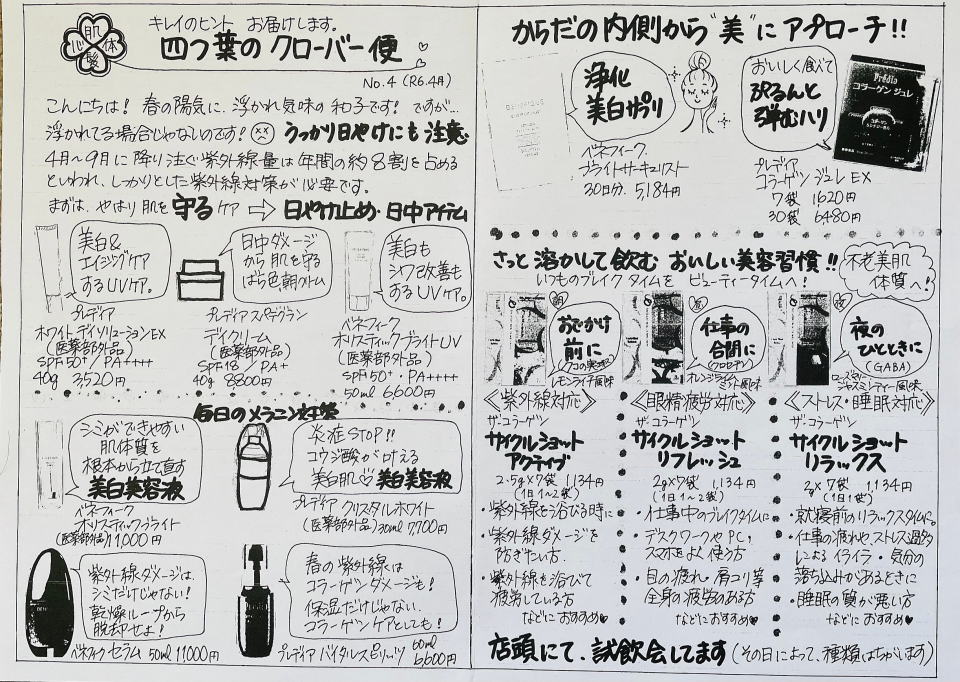 肌
心 体
髪
キレイのヒント お届けします。
四つ葉のクローバー便
No.4 (R6.4月)
こんにちは! 春の陽気に、浮かれ気味の和子です! ですが…
浮かれてる場合じゃないのです! うっかり日やけにも注意
4月〜9月に降り注ぐ紫外線量は年間の約8割を占める
といわれ、しっかりとした紫外線対策が必要です。
まずは、やはり肌を守るケア ⇨ 日やけ止め・日中アイテム
美白&
エイジングケア
するUVケア。
プレディア
ホワイトデイソリューションEX
(医薬部外品)
SPF50+/PA++++
40g 3520円
日中ダメージ
から肌を守る
ばら色朝クリーム
プレディア スパーグラン
デイクリーム
(医薬部外品)
SPF18/PA+
40g 8800円
美白も
シワ改善も
するUVケア。
ベネフィーク
オリスティックブライトUV
(医薬部外品)
SPF50+・PA++++
50ml 6600円
毎日のメラニン対策
シミができやすい
肌体質を
根本から立て直す
美白美容液
ベネフィーク
オリスティックブライト
(医薬部外品)11,000円
炎症STOP!!
コウジ酸が叶える
美白肌♡美白美容液
プレディア クリスタルホワイト
(医薬部外品) 30ml 7,700円
紫外線ダメージは、
シミだけじゃない!
乾燥ループから
脱却せよ!
ベネフィーク セラム 50ml 11000円
春の紫外線は
コラーゲンダメージも!
保湿だけじゃない、
コラーゲンケアとしても!
プレディア バイタルスピリッツ 60ml
6,600円
からだの内側から"美"にアプローチ!!
浄化
美白サプリ
ベネフィーク
ブライトサーキュリスト
30日分. 5,184円
おいしく食べて
ぷるんと
弾むハリ
Prédia
コラーゲン ジュレ
プレディア
コラーゲン ジュレ EX
7袋 1620円
30袋 6480円
さっと溶かして飲む おいしい美容習慣!!
いつものブレイクタイムを ビューティータイムへ!
不老美肌
体質へ!
朝
おでかけ
前に
(クコの実エキス)
レモンライチ風味
昼
仕事の
合間に
(クロセチン)
オレンジライム
ミント風味
夜
夜の
ひとときに
(GABA)
ローズヒップ
ジャスミンティー風味
《紫外線対応》
ザ・コラーゲン
サイクルショット
アクティブ
2.5g×7袋 1,134円
(1日1〜2袋)
・紫外線を浴びる時に
・紫外線ダメージを
防ぎたい方.
・紫外線を浴びて
疲労している方
などにおすすめ♥
《眼精疲労対応》
ザ・コラーゲン
サイクルショット
リフレッシュ
2g×7袋 1,134円
(1日1〜2袋)
・仕事中のブレイクタイムに
・デスクワークやPC,
スマホをよく使う方
・目の疲れ・肩コリ等
全身の疲労のある方
などにおすすめ♥
《ストレス・睡眠対応》
ザ・コラーゲン
サイクルショット
リラックス
2g×7袋 1,134円
(1日1袋)
・就寝前のリラックスタイムに。
・仕事の疲れや、ストレス過多
によるイライラ・気分の
落ち込みがあるときに
・睡眠の質が悪い方
などにおすすめ♥
店頭にて、試飲会してます(その日によって、種類はちがいます)